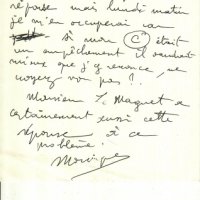 réponse mais lundi matin
je m'en occuperai car
si mon C était
un empêchement il vaudrait
mieux que j'y renonce, ne
croyez vous pas ??
Monsieur Maguet a
certainement aussi cette
réponse à ce
problème.